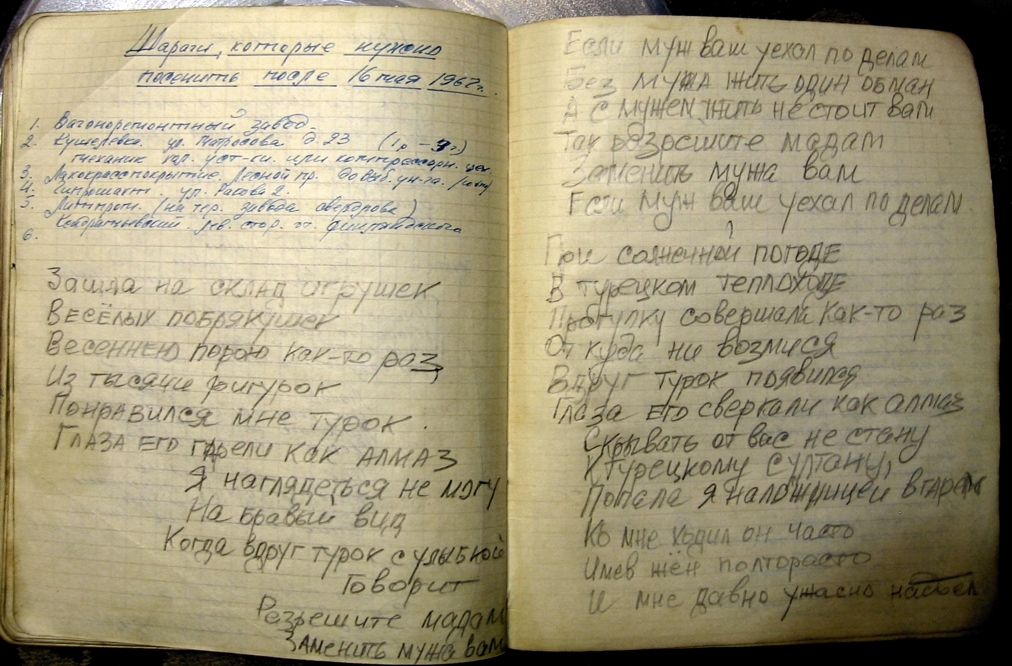 Шараги, которые нужно
посенить после 16 мая 1967г.
1. Вагоноремонтный завод.
2. Кушелевка. ул. д. 23
механик уст-ки. или компрессорн. цех.
3. Лакокраспокрытие, Лесной пр.
4. ул. 2.
5. (на тер. завода свердлова)
6. Кондратьевский. ст. финляндского
Зашла на склад игрушек
Весёлых побрякушек
Весеннею порою как-то раз
Из тысячи фигурок
Понравился мне турок.
Глаза его горели как алмаз
Я наглядеться не могу
На бравый вид
Когда вдруг турок с улыбкой
Говорит
Резрешите мадам
Заменить мужа вам
Если муж ваш уехал по делам
Без мужа жить один обман
А с мужем жить не стоит вам
Так розрешите мадам
Заменить мужа вам
Если муж ваш уехал по делам
При солнечной погоде
В турецком теплоходе
Прогулку совершала как-то раз
От куда ни возмися
Вдруг турок появился
Глаза его сверкали как алмаз
Скрывать от вас не стану
К турецкому султану,
Попала я наложницей в гарем
Ко мне ходил он часто
Имев жён полтораста
И мне давно ужасно надоел